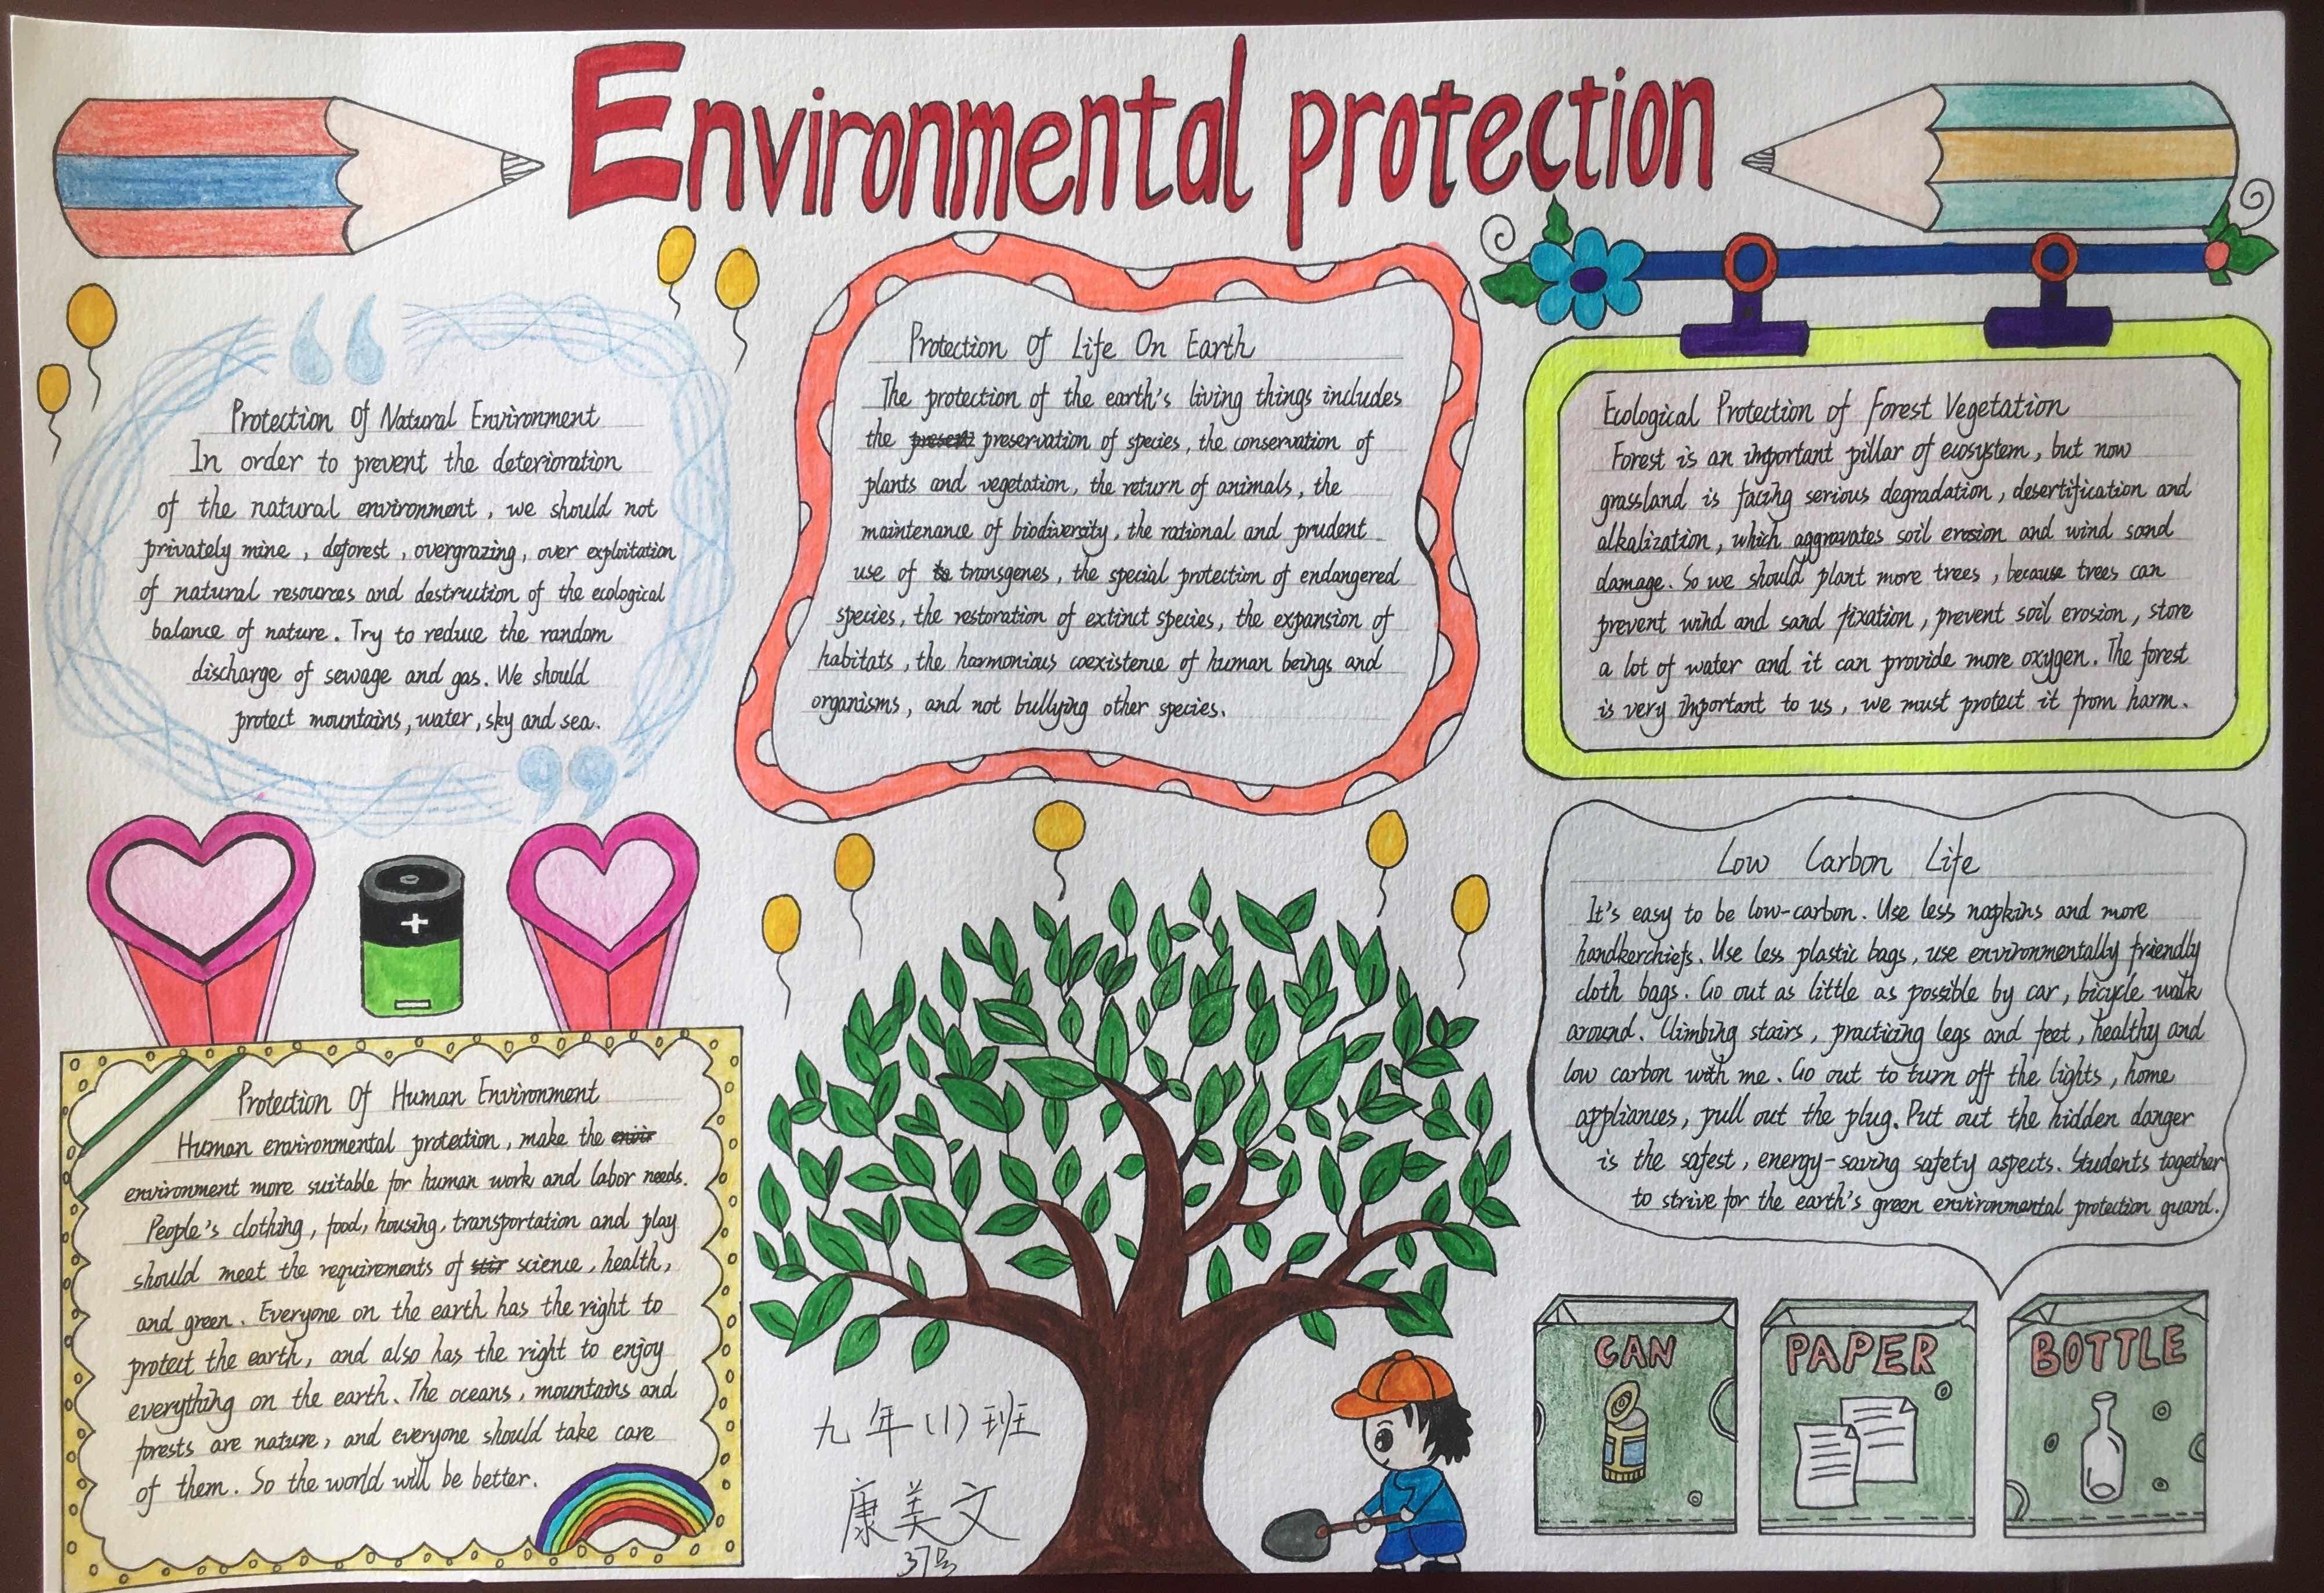 Environmental protection
Protection Of Natural Environment
In order to prevent the deterioration
of the natural environment, we should not
privately mine, deforest, overgrazing, over exploitation
of natural resources and destruction of the ecological
balance of nature. Try to reduce the random
discharge of sewage and gas. We should
protect mountains, water, sky and sea.
Protection Of Life On Earth
The protection of the earth's living things includes
the present preservation of species, the conservation of
plants and vegetation, the return of animals, the
maintenance of biodiversity, the rational and prudent
use of to transgenes, the special protection of endangered
species, the restoration of extinct species, the expansion of
habitats, the harmonious coexistence of human beings and
organisms, and not bullying other species.
Ecological Protection of Forest Vegetation
Forest is an important pillar of ecosystem, but now
grassland is facing serious degradation, desertification and
alkalization, which aggravates soil erosion and wind sand
damage. So we should plant more trees, because trees can
prevent wind and sand fixation, prevent soil erosion, store
a lot of water and it can provide more oxygen. The forest
is very important to us, we must protect it from harm.
Protection Of Human Environment
Human environmental protection, make the
environment more suitable for human work and labor needs.
People's clothing, food, housing, transportation and play
should meet the requirements of science, health,
and green. Everyone on the earth has the right to
protect the earth, and also has the right to enjoy
everything on the earth. The oceans, mountains and
forests are nature, and everyone should take care
of them. So the world will be better.
Low Carbon Life
It's easy to be low-carbon. Use less napkins and more
handkerchiefs. Use less plastic bags, use environmentally friendly
cloth bags. Go out as little as possible by car, bicycle walk
around. Climbing stairs, practicing legs and feet, healthy and
low carbon with me. Go out to turn off the lights, home
appliances, pull out the plug. Put out the hidden danger
is the safest, energy-saving safety aspects. Students together
to strive for the earth's green environmental protection guard.
CAN
PAPER
BOTTLE
九年(1)班
康美文
37号